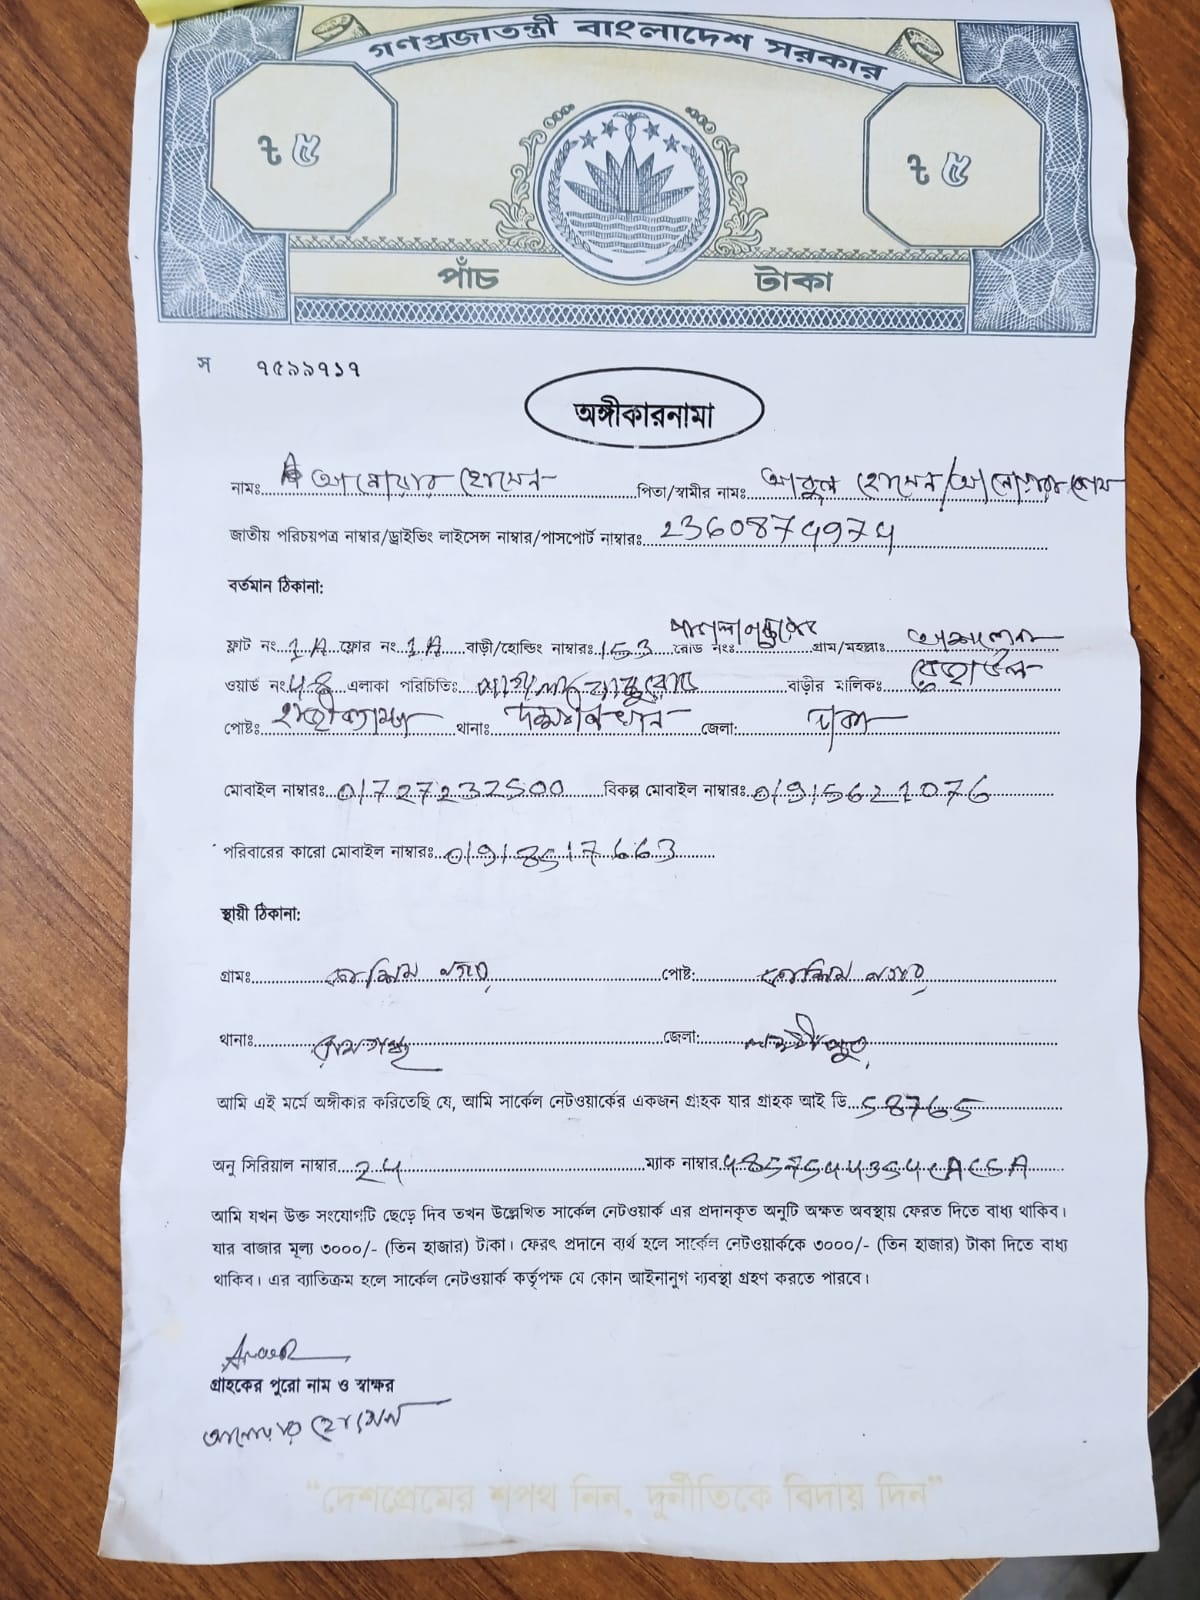 গণপ্রজাতন্ত্রী বাংলাদেশ সরকার
৳ ৫ ৳ ৫
পাঁচ টাকা
স ৭৫৯৯৭১৭
অঙ্গীকারনামা
নামঃ আনোয়ার হোসেন পিতা/স্বামীর নামঃ আবুল হোসেন/আনোয়ারা বেগম
জাতীয় পরিচয়পত্র নাম্বার/ড্রাইভিং লাইসেন্স নাম্বার/পাসপোর্ট নাম্বারঃ
বর্তমান ঠিকানা:
ফ্লাট নং 1A ফ্লোর নং 1A বাড়ী/হোল্ডিং নাম্বারঃ 153 রোড নংঃ গ্রাম/মহল্লাঃ
ওয়ার্ড নং 48 এলাকা পরিচিতিঃ বাড়ীর মালিকঃ
পোষ্টঃ থানাঃ জেলা: ঢাকা
মোবাইল নাম্বারঃ 01727232500 বিকল্প মোবাইল নাম্বারঃ 01915621076
পরিবারের কারো মোবাইল নাম্বারঃ 01918517663
স্থায়ী ঠিকানা:
গ্রামঃ নগর পোষ্ট: নগর
থানাঃ রামগঞ্জ জেলা: লক্ষীপুর
আমি এই মর্মে অঙ্গীকার করিতেছি যে, আমি সার্কেল নেটওয়ার্কের একজন গ্রাহক যার গ্রাহক আই ডি 58765
অনু সিরিয়াল নাম্বার 24 ম্যাক নাম্বার
আমি যখন উক্ত সংযোগটি ছেড়ে দিব তখন উল্লেখিত সার্কেল নেটওয়ার্ক এর প্রদানকৃত অনুটি অক্ষত অবস্থায় ফেরত দিতে বাধ্য থাকিব।
যার বাজার মূল্য ৩০০০/- (তিন হাজার) টাকা। ফেরৎ প্রদানে ব্যর্থ হলে সার্কেল নেটওয়ার্ককে ৩০০০/- (তিন হাজার) টাকা দিতে বাধ্য
থাকিব। এর ব্যাতিক্রম হলে সার্কেল নেটওয়ার্ক কর্তৃপক্ষ যে কোন আইনানুগ ব্যবস্থা গ্রহণ করতে পারবে।
গ্রাহকের পুরো নাম ও স্বাক্ষর
আনোয়ার হোসেন
“দেশপ্রেমের শপথ নিন, দুর্নীতিকে বিদায় দিন”